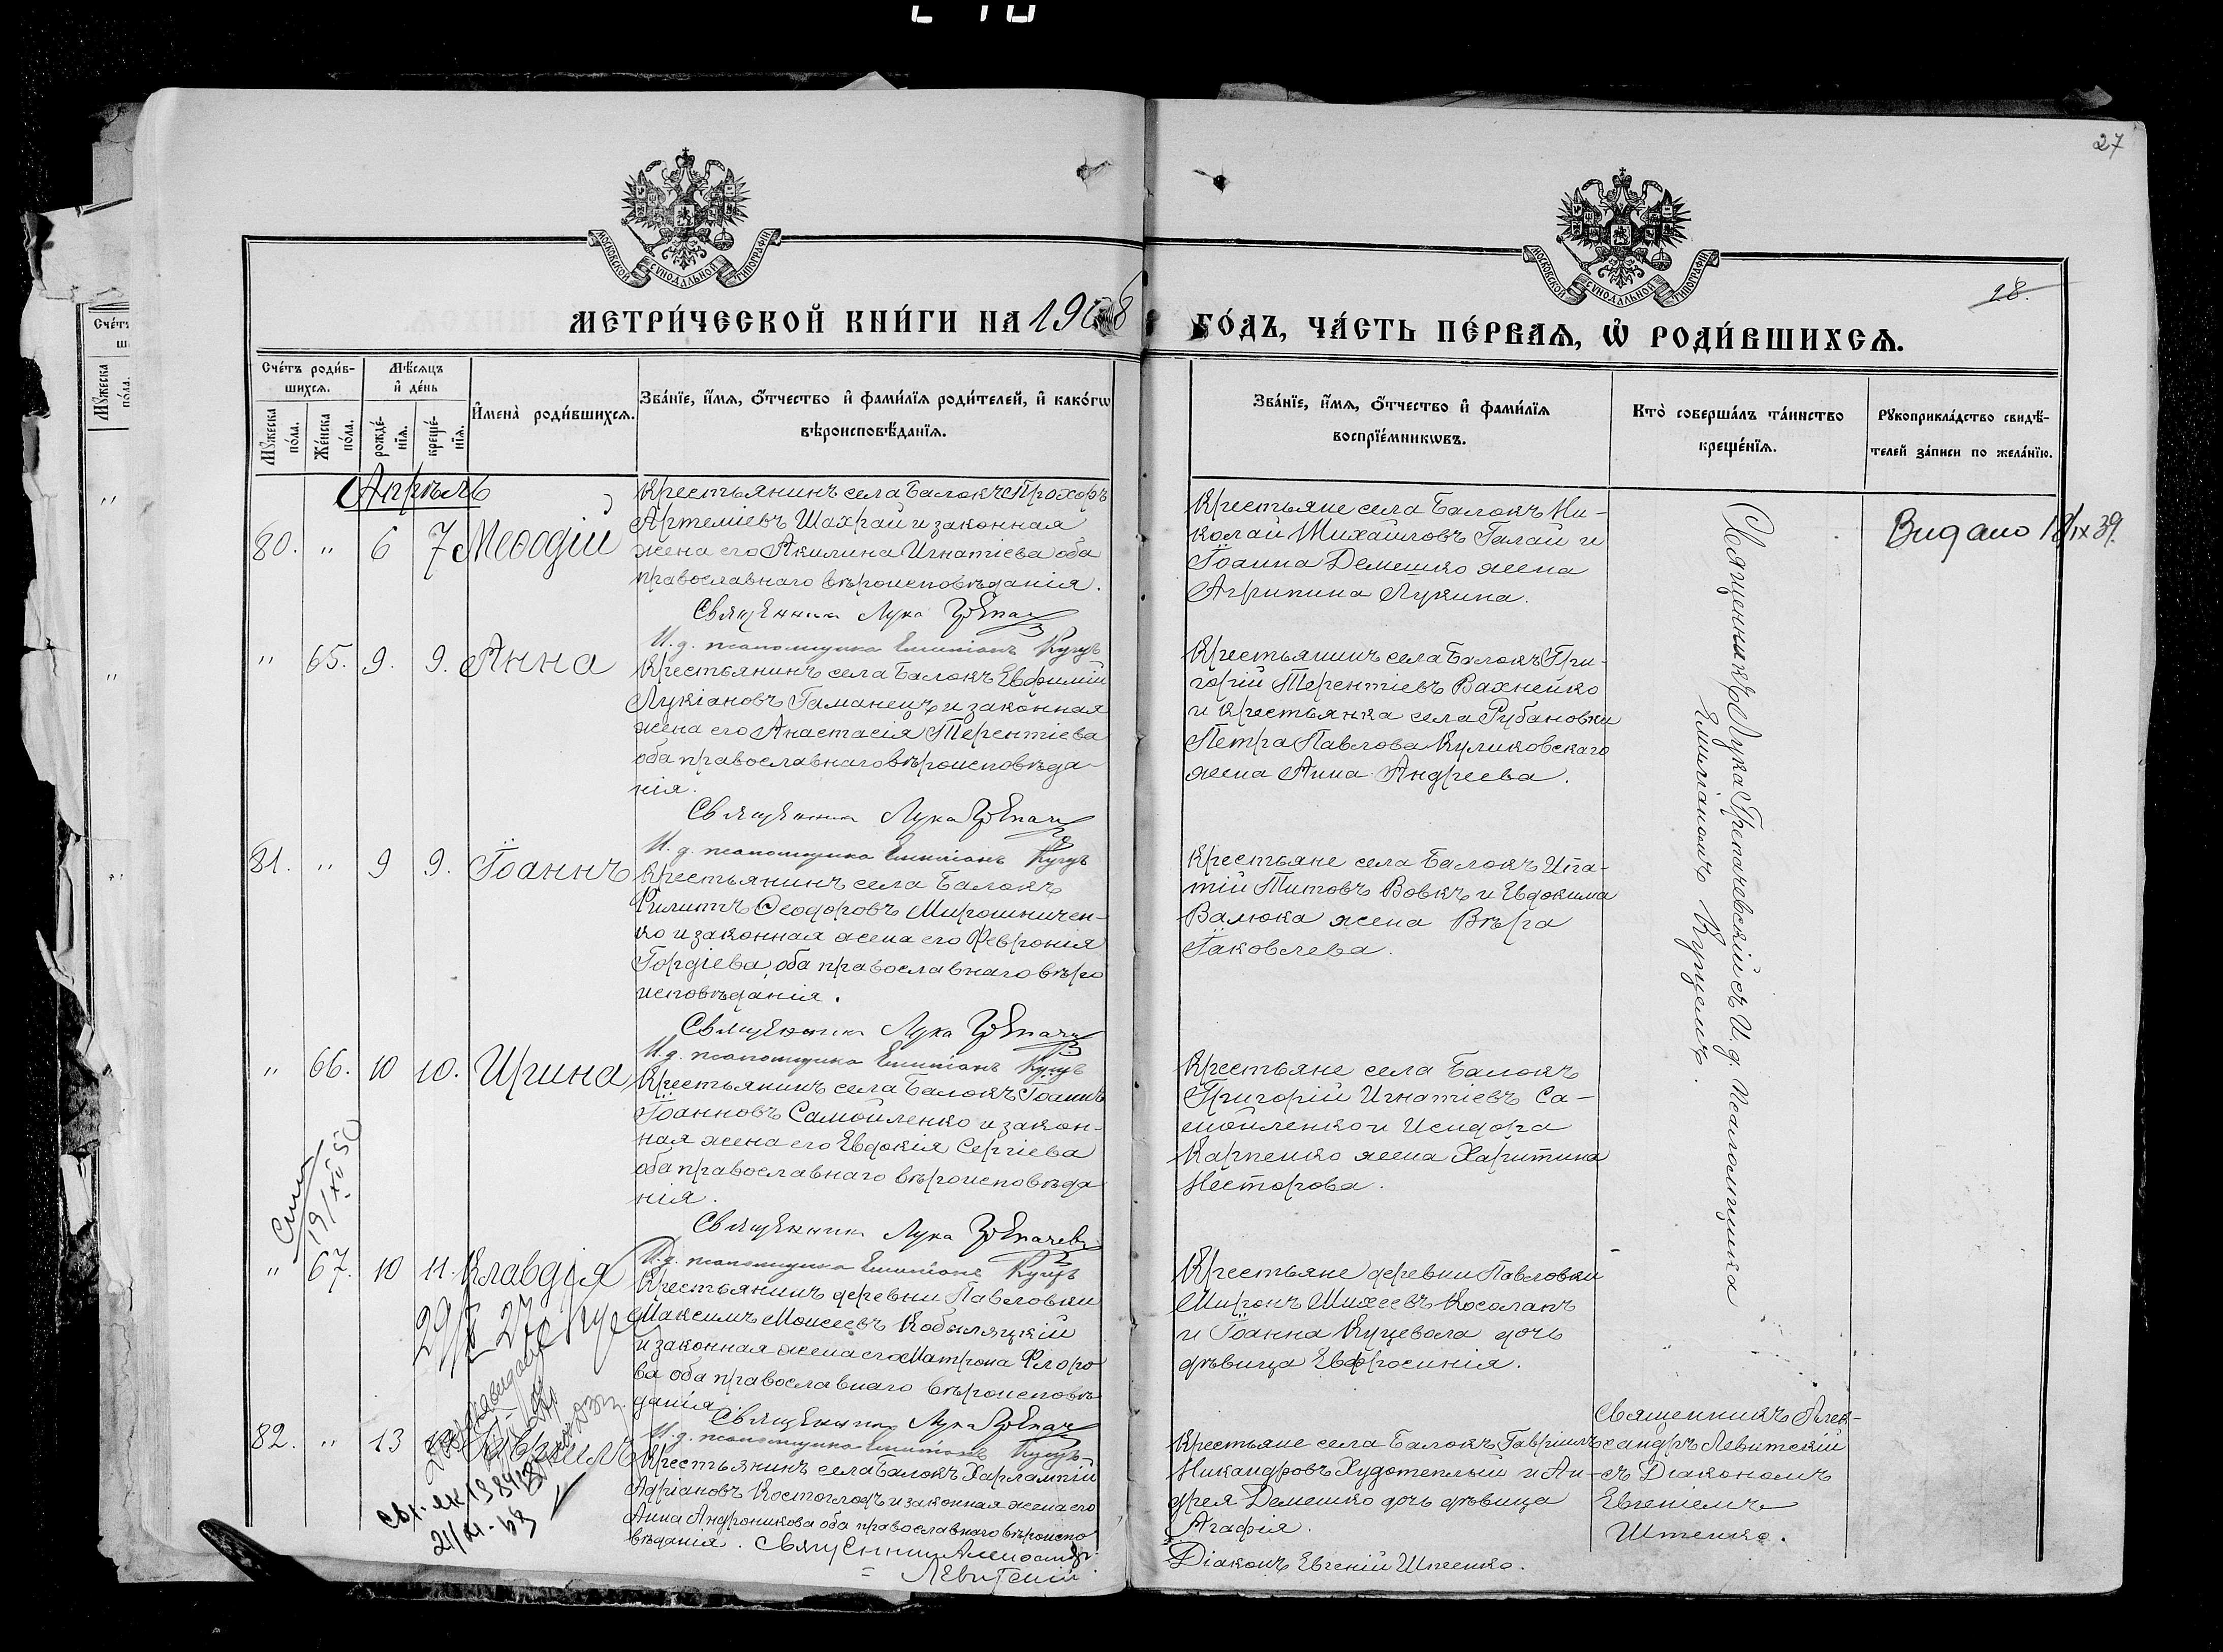 27
МОСКОВСКОЙ СѴНОДАЛЬНОЙ ТИПОГРАФІИ
МОСКОВСКОЙ СѴНОДАЛЬНОЙ ТИПОГРАФІИ
28.
МЕТРИ́ЧЕСКОЙ КНИ́ГИ НА 1908 ГО́ДЪ, ЧА́СТЬ ПЕ́РВАѦ, Ѡ҆ РОДИ́ВШИХСѦ.
Сче́тъ роди́в-
шихсѧ.
Мꙋ́жеска по́ла.
Же́нска по́ла.
Мѣ́сѧцъ
и҆ де́нь
рожде́-
нїѧ.
креще́-
нїѧ.
И҆мена̀ роди́вшихсѧ.
Зва́нїе, и҆́мѧ, ѻ҆́тчество и҆ фами́лїѧ роди́телей, и҆ како́гѡ
вѣроисповѣ́данїѧ.
Зва́нїе, и҆́мѧ, ѻ҆́тчество и҆ фами́лїѧ
воспрїе́мникѡвъ.
Кто̀ соверша́лъ та́инство
креще́нїѧ.
Рꙋкоприкла́дство свидѣ́-
телей за́писи по жела́нїю.
Апрѣль
80. " 6 7 Меѳодій
Крестьянинъ села Балокъ Прохоръ
Артеміевъ Шахрай и законная
жена его Акилина Игнатіева оба
православнаго вѣроисповѣданія.
Священникъ Лука
И. д. псаломщика Емиліанъ Куцъ
Крестьяне села Балокъ Ни-
колай Михайловъ Галай и
Іоанна Демешко жена
Агрипина Лукина.
Священникъ Лука Грепачевскій съ И. д. Псаломщика
Емиліаномъ Куцемъ.
Видано 18/IX 39.
" 65. 9. 9. Анна
Крестьянинъ села Балокъ Евфимій
Лукіановъ Гаманецъ и законная
жена его Анастасія Терентіева
оба православнаго вѣроисповѣда-
нія.
Священникъ Лука
И. д. псаломщика Емиліанъ Куцъ
Крестьянинъ села Балокъ Гри-
горій Терентіевъ Вахненко
и крестьянка села Рубановки
Петра Павлова Куликовскаго
жена Анна Андреева.
81. " 9 9. Іоаннъ
Крестьянинъ села Балокъ
Филиппъ Ѳеодоровъ Мирошничен-
ко и законная жена его Февронія
Гордіева, оба православнаго вѣро
исповѣданія.
Священникъ Лука
И. д. псаломщика Емиліанъ Куцъ
Крестьяне села Балокъ Ипа-
тій Титовъ Вовкъ и Евдокима
Валюка жена Вѣра
Іаковлева.
" 66. 10 10. Ирина
Крестьянинъ села Балокъ Іоаннъ
Іоанновъ Самойленко и закон-
ная жена его Евдокія Сергіева
оба православнаго вѣроисповѣда
нія.
Священникъ Лука
И. д. псаломщика Емиліанъ Куцъ
Крестьяне села Балокъ
Григорій Игнатіевъ Са-
мойленко и Исидора
Карпенко жена Харитина
Несторова.
19/XII 50
" 67. 10 11. Клавдія
Крестьянинъ деревни Павловки
Максимъ Моисеевъ Кобыляцкій
и законная жена его Матрона Флоро
ва оба православнаго вѣроисповѣ
данія.
Священникъ Лука
И. д. псаломщика Емиліанъ Куцъ
Крестьяне деревни Павловки
Миронъ Михеевъ Косолапъ
и Іоанна Куцевола дочь
дѣвица Евфросинія.
82. " 13
Крестьянинъ села Балокъ Харлампій
Адріановъ Костоглодъ и законная жена его
Анна Андроникова оба православнаго вѣроиспо
вѣданія. Священникъ
Левитскій
Крестьяне села Балокъ Гавріилъ
Никандровъ Худотеплый и Ан-
дрея Демешко дочь дѣвица
Агафія.
Діаконъ Евгеній Штенко.
Священникъ Алек-
сандръ Левитскій
съ Діакономъ
Евгеніемъ
Штенко.